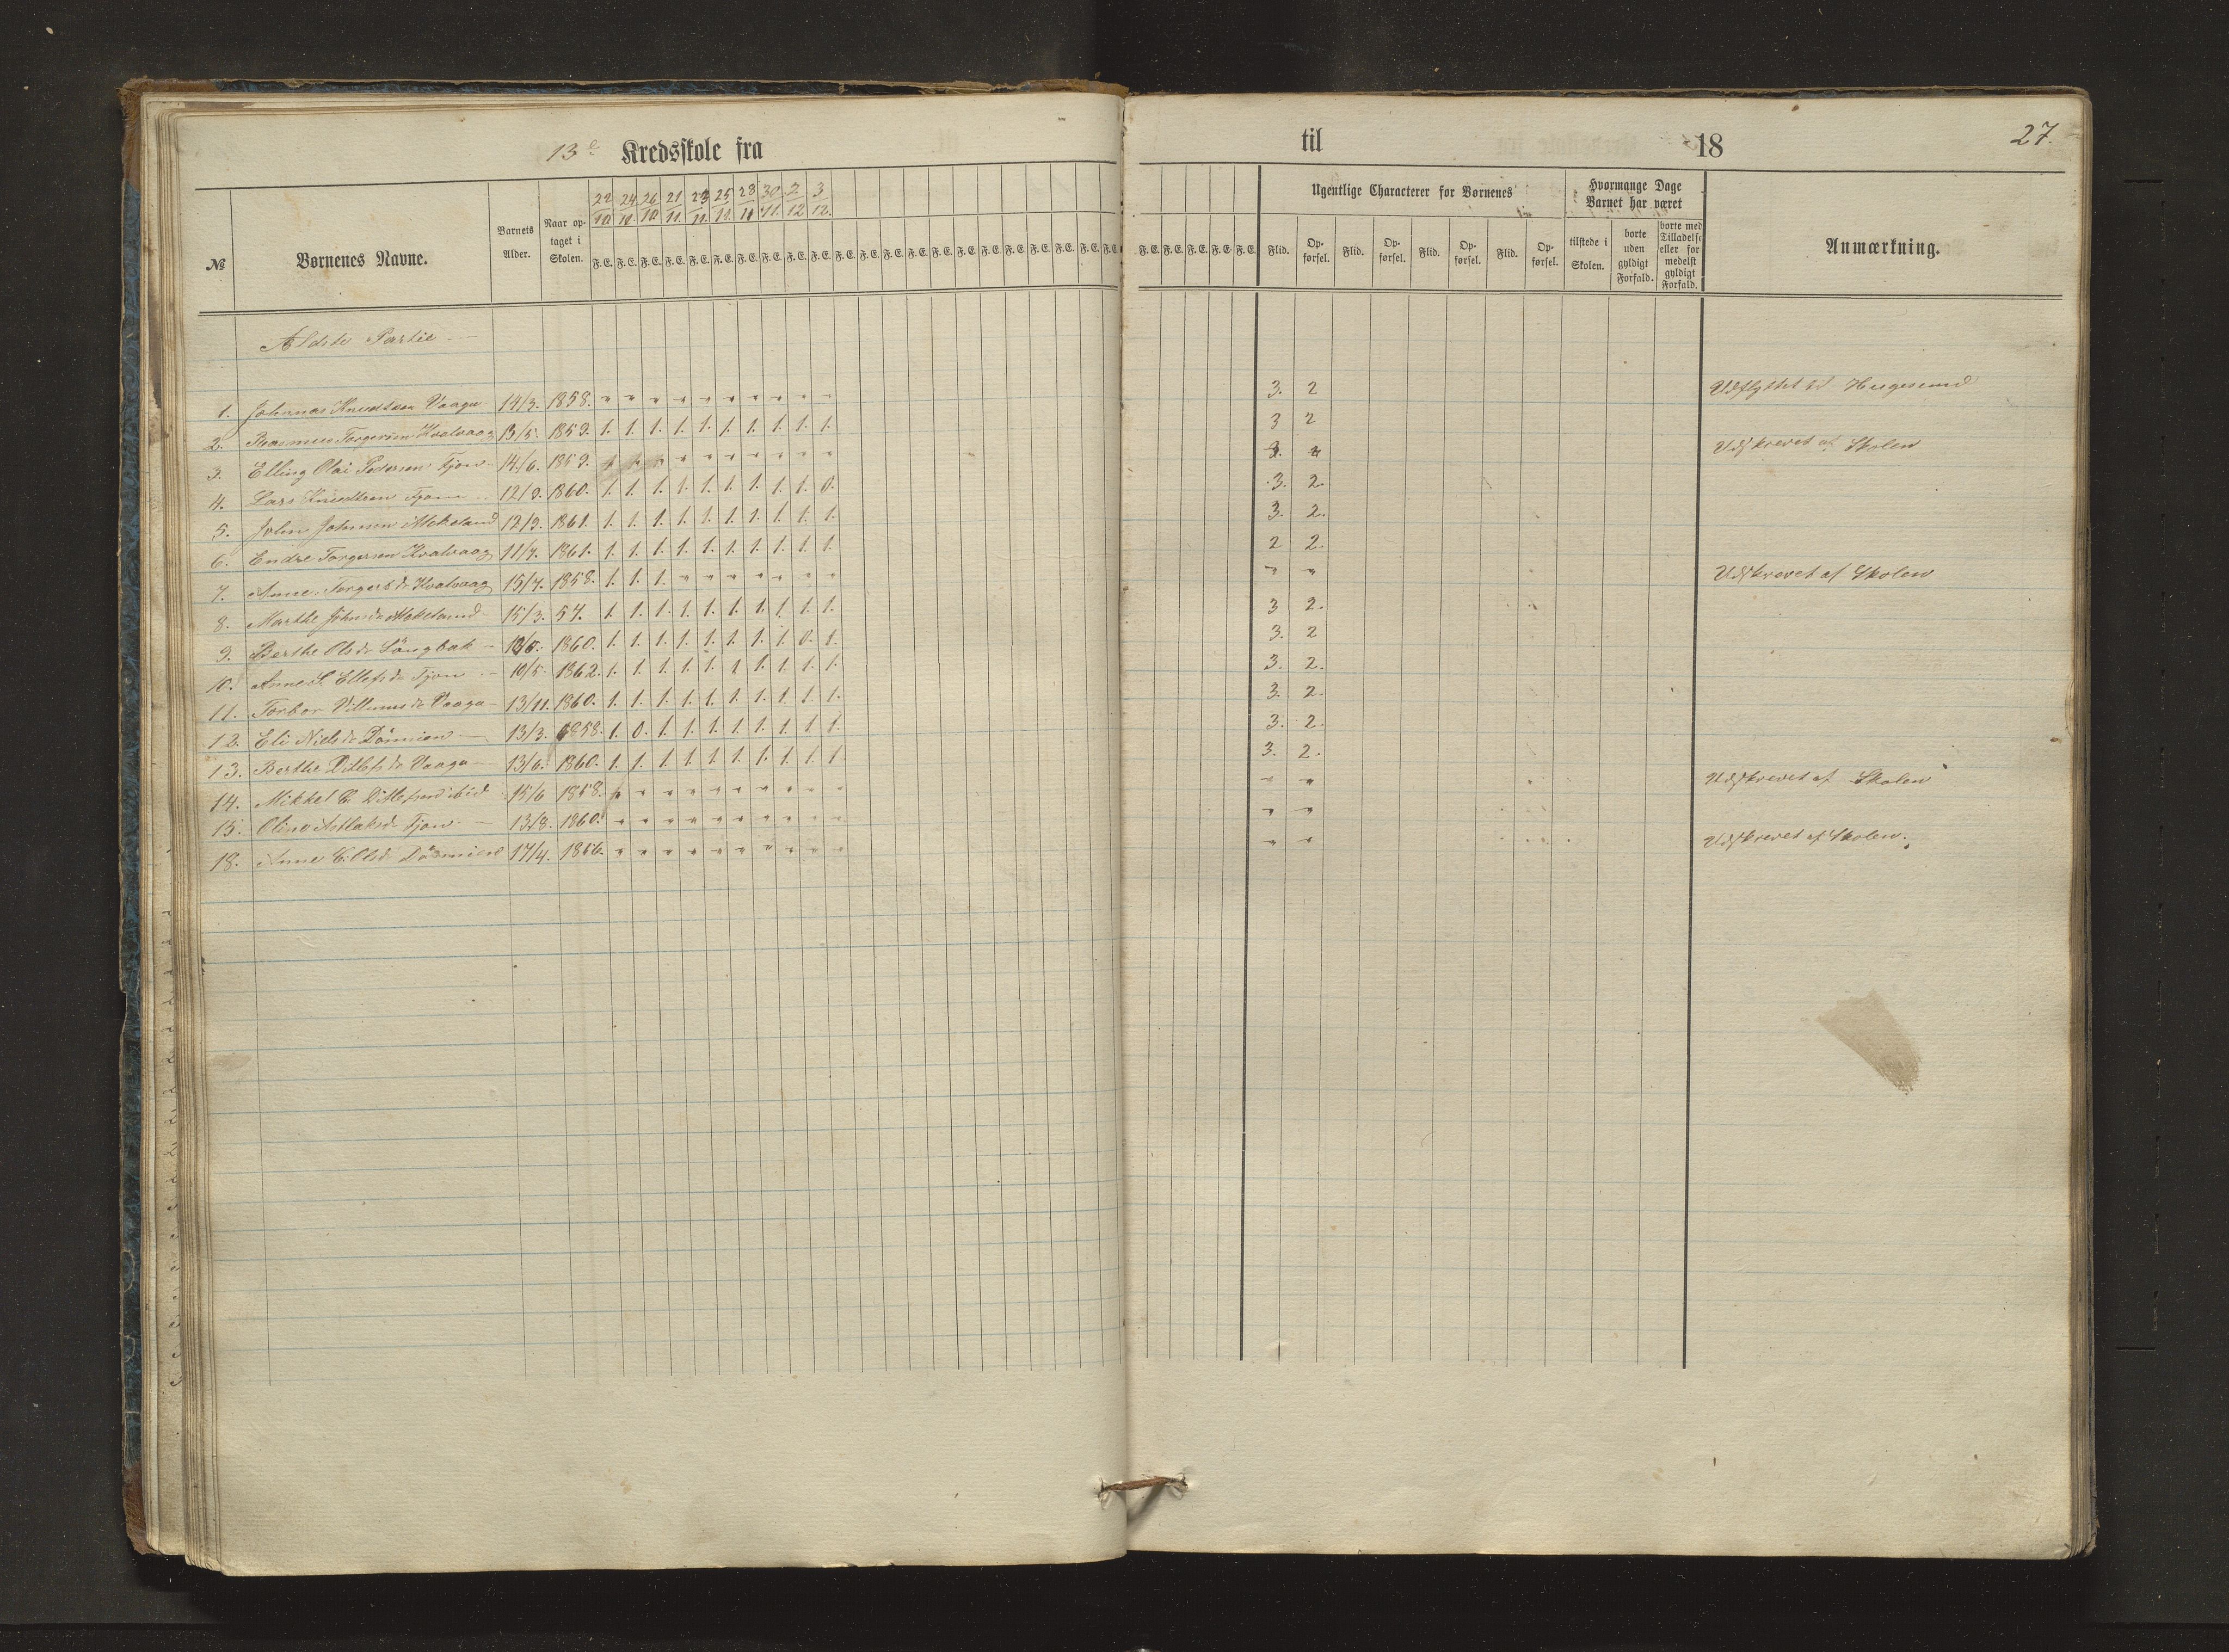 13de Kredsskole fra
til 18 27.
№ Børnenes Navne. Barnets Alder. Naar optaget i Skolen. 22/10 24/10 26/10 21/11 23/11 25/11 28/11 30/11. 2/12 3/12. Ugentlige Characterer for Børnenes Hvormange Dage Barnet har været Anmærkning.
F. E. F. E. F. E. F. E. F. E. F. E. F. E. F. E. F. E. F. E. F. E. F. E. F. E. F. E. F. E. F. E. F. E. F. E. F. E. F. E. F. E. F. E.
F. E. F. E. F. E. F. E. F. E. Flid. Opførsel. Flid. Opførsel. Flid. Opførsel. Flid. Opførsel. tilstede i Skolen. borte uden gyldigt Forfald. borte med Tilladelse eller formedelst gyldigt Forfald.
Ældste Partie
1. Johannes Knudsen Vaaga 14/3. 1858. " " " " " " " " " " 3. 2 Udflyttet til Haugesund
2. Rasmus Torgersen Hvalvaag 13/5. 1859. 1. 1. 1. 1. 1. 1. 1. 1. 1. 1. 3 2
3. Elling Olai Pedersen Tjøn 14/6. 1859. " " " " " " " Udskrevet af Skolen
4. Lars Knudsen Tjøn 12/9. 1860. 1. 1. 1. 1. 1. 1. 1. 1. 1. 0. 3. 2.
5. John Johnsen Mokeland 12/9. 1861. 1. 1. 1. 1. 1. 1. 1. 1. 1. 1. 3. 2.
6. Endre Torgersen Hvalvaag 11/7. 1861. 1. 1. 1. 1. 1. 1. 1. 1. 1. 1. 2 2.
7. Anne Torgersdr Hvalvaag 15/7. 1858. 1. 1. 1. " " " " " " " " " Udskrevet af Skolen
8. Marthe Johnsdr Mokeland 15/3. 57. 1. 1. 1. 1. 1. 1. 1. 1. 1. 1. 3 2.
9. Berthe Olsdr Långbak 1860. 1. 1. 1. 1. 1. 1. 1. 1. 0. 1. 3. 2
10. Anne S. Ellefsdr Tjøn 10/5. 1862. 1. 1. 1. 1. 1. 1 1. 1. 1. 1. 3. 2.
11. Torbor Villumsdr Vaaga 13/11. 1860. 1. 1. 1. 1. 1. 1. 1. 1. 1. 1. 3. 2.
12. Eli Nielsdr 13/3. 1858. 1. 0. 1. 1. 1. 1. 1. 1. 1. 1. 3. 2.
13. Berthe Ditlefsdr Vaaga 13/6. 1860. 1. 1. 1. 1. 1. 1. 1. 1. 1. 1. 3. 2.
14. Mikkel E. Ditlefsen ibid 15/6 1858. " " " " " " " " " " " Udskrevet af Skolen
15. Oline Aslaksdr Tjøn 13/8. 1860. " " " " " " " " " " " "
18. Anne 17/4. 1856. " " " " " " " " " " " " Udskrevet af Skolen.